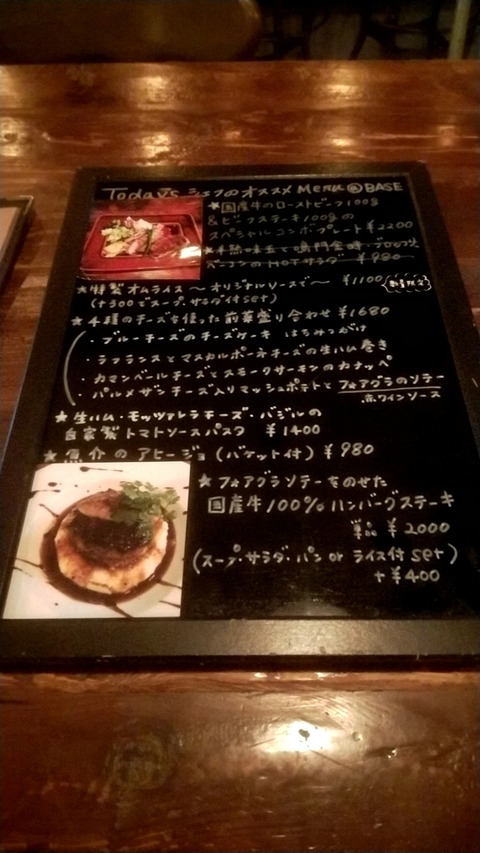 Today's シェフのオススメ Menu @ BASE
★国産牛のローストビーフ100g
&ビーフステーキ100gの
スペシャルコンボプレート ¥2200
★半熟味玉と鳴門金時・ブロック
ベーコンのHOTサラダ ¥980
★特製オムライス〜オリジナルソースで〜 ¥1100 数量限定
(+300でスープ、サラダ付set)
★4種のチーズを使った前菜盛り合わせ ¥1680
・ブルーチーズのチーズケーキ はちみつがけ
・ラフランスとマスカルポーネチーズの生ハム巻き
・カマンベールチーズとスモークサーモンのカナッペ
・パルメザンチーズ入りマッシュポテトとフォアグラのソテー
赤ワインソース
★生ハム・モッツァレラチーズ・バジルの
自家製トマトソースパスタ ¥1400
★魚介のアヒージョ(バケット付) ¥980
★フォアグラソテーをのせた
国産牛100%ハンバーグステーキ
単品 ¥2000
(スープ・サラダ・パン or ライス付 set)
+¥400